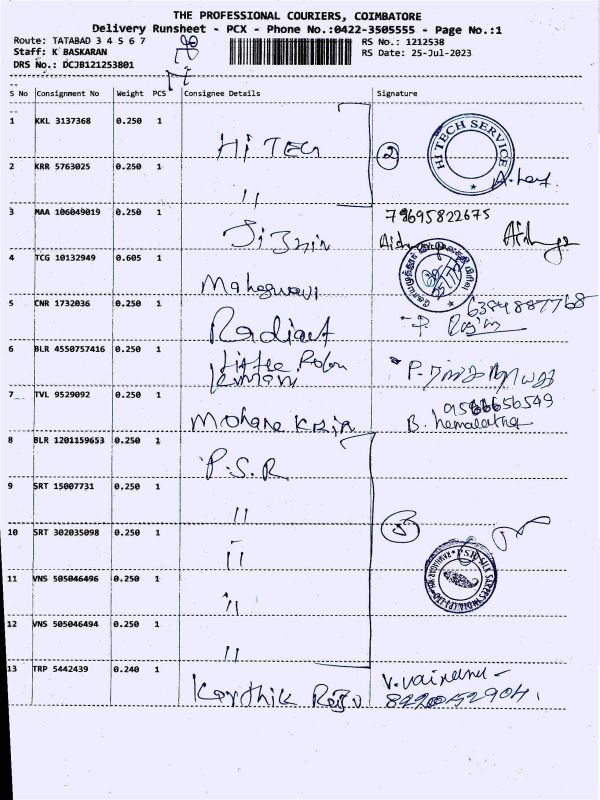 THE PROFESSIONAL COURIERS, COIMBATORE
Delivery Runsheet - PCX - Phone No.:0422-3505555 - Page No.:1
Route: TATABAD 3 4 5 6 7
RS No.: 1212538
Staff: K BASKARAN
RS Date: 25-Jul-2023
DRS No.: DCJB121253801
S No Consignment No Weight PCS Consignee Details Signature
1 KKL 3137368 0.250 1 Hi TECH
2 HI TECH SERVICE
2 KRR 5763025 0.250 1 11
3 MAA 106049019 0.250 1
79695822675
4 TCG 10132949 0.605 1 Maheswari
5 CNR 1732036 0.250 1 Radiant
6384887768
6 BLR 4550757416 0.250 1 Little
7 TVL 9529092 0.250 1 Mohana
B. hemalatha
8 BLR 1201159653 0.250 1 P.S.R
9 SRT 15007731 0.250 1 11
5
10 SRT 302035098 0.250 1 11
11 VNS 505046496 0.250 1 11
12 VNS 505046494 0.250 1 11
13 TRP 5442439 0.240 1 Karthik